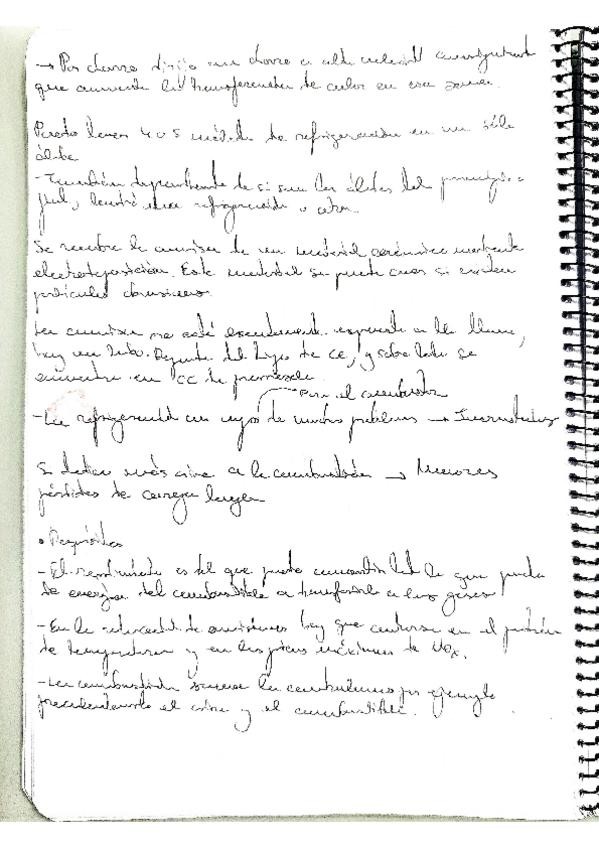 → Por chorro dirijo un chorro a alta velocidad
que aumenta la transferencia de calor en esa zona.
Puedo tener 4 o 5 métodos de refrigeración en un sólo
álabe
- También dependiendo de si son los álabes del principio o
final, tendrá una refrigeración u otra.
Se recubre la camisa de un material cerámico mediante
electrodeposición. Este material se puede caer si existen
partículas
La camisa no está expuesta a la llama,
hay un tubo. Depende del tipo de CC, y sobre todo se
encuentra en CC de premezcla
Para el combustor
- La refrigeración con vapor da muchos problemas →
Se dedica más aire a la combustión → Menores
pérdidas de carga
• Requisitos
- El rendimiento es del que puede la que pueda
de energía del combustible a transferirla a los gases
- En la reducción de emisiones hay que centrarse en el patrón
de temperaturas y en los picos máximos de NOx.
- La combustión por ejemplo
precalentando el aire y el combustible.